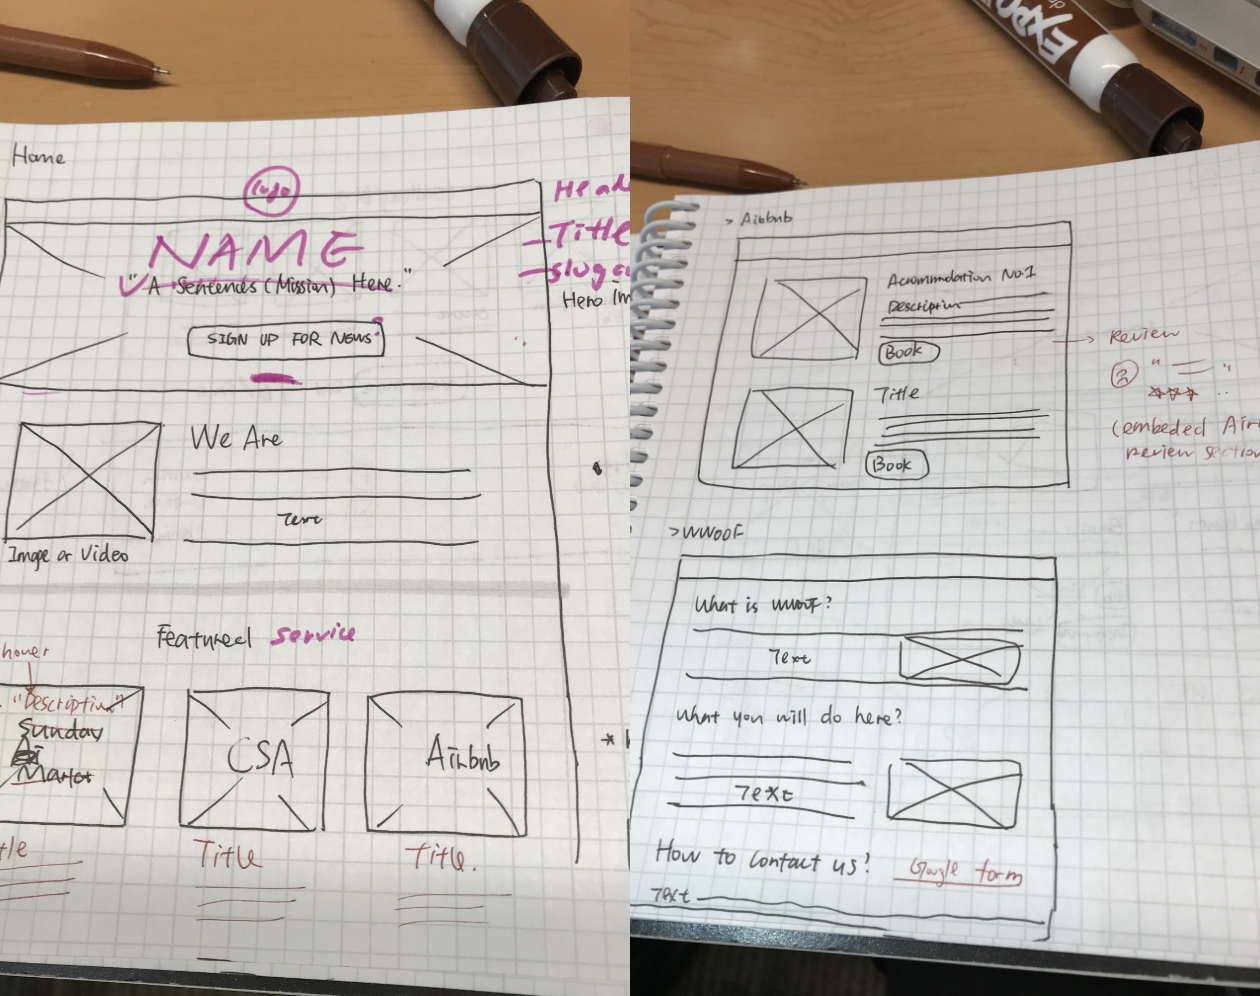 Home
logo
NAME
"A Sentences (Mission) Here."
SIGN UP FOR NEWS
Head
Title
slug
Hero Im
We Are
Text
Image or Video
Featured service
hover
"Description"
Sunday
Market
CSA
Airbnb
tle
Title
Title.
EXPO
> Airbnb
Accommodation No.1
Description
Book
Title
Book
Review
(embeded Air
review section
> WWOOF
What is WWOOF?
Text
What you will do here?
Text
How to contact us?
Google form
Text